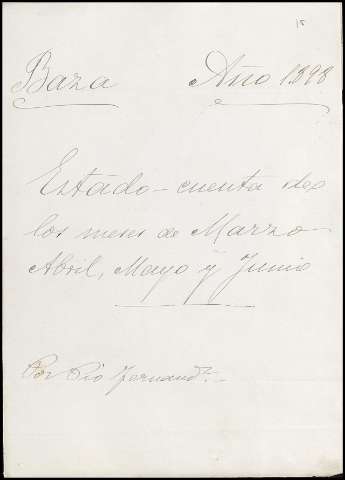 15
Baza Año 1898
Estado-cuenta de
los meses de Marzo
Abril, Mayo y Junio
Por Pio Fernandz.